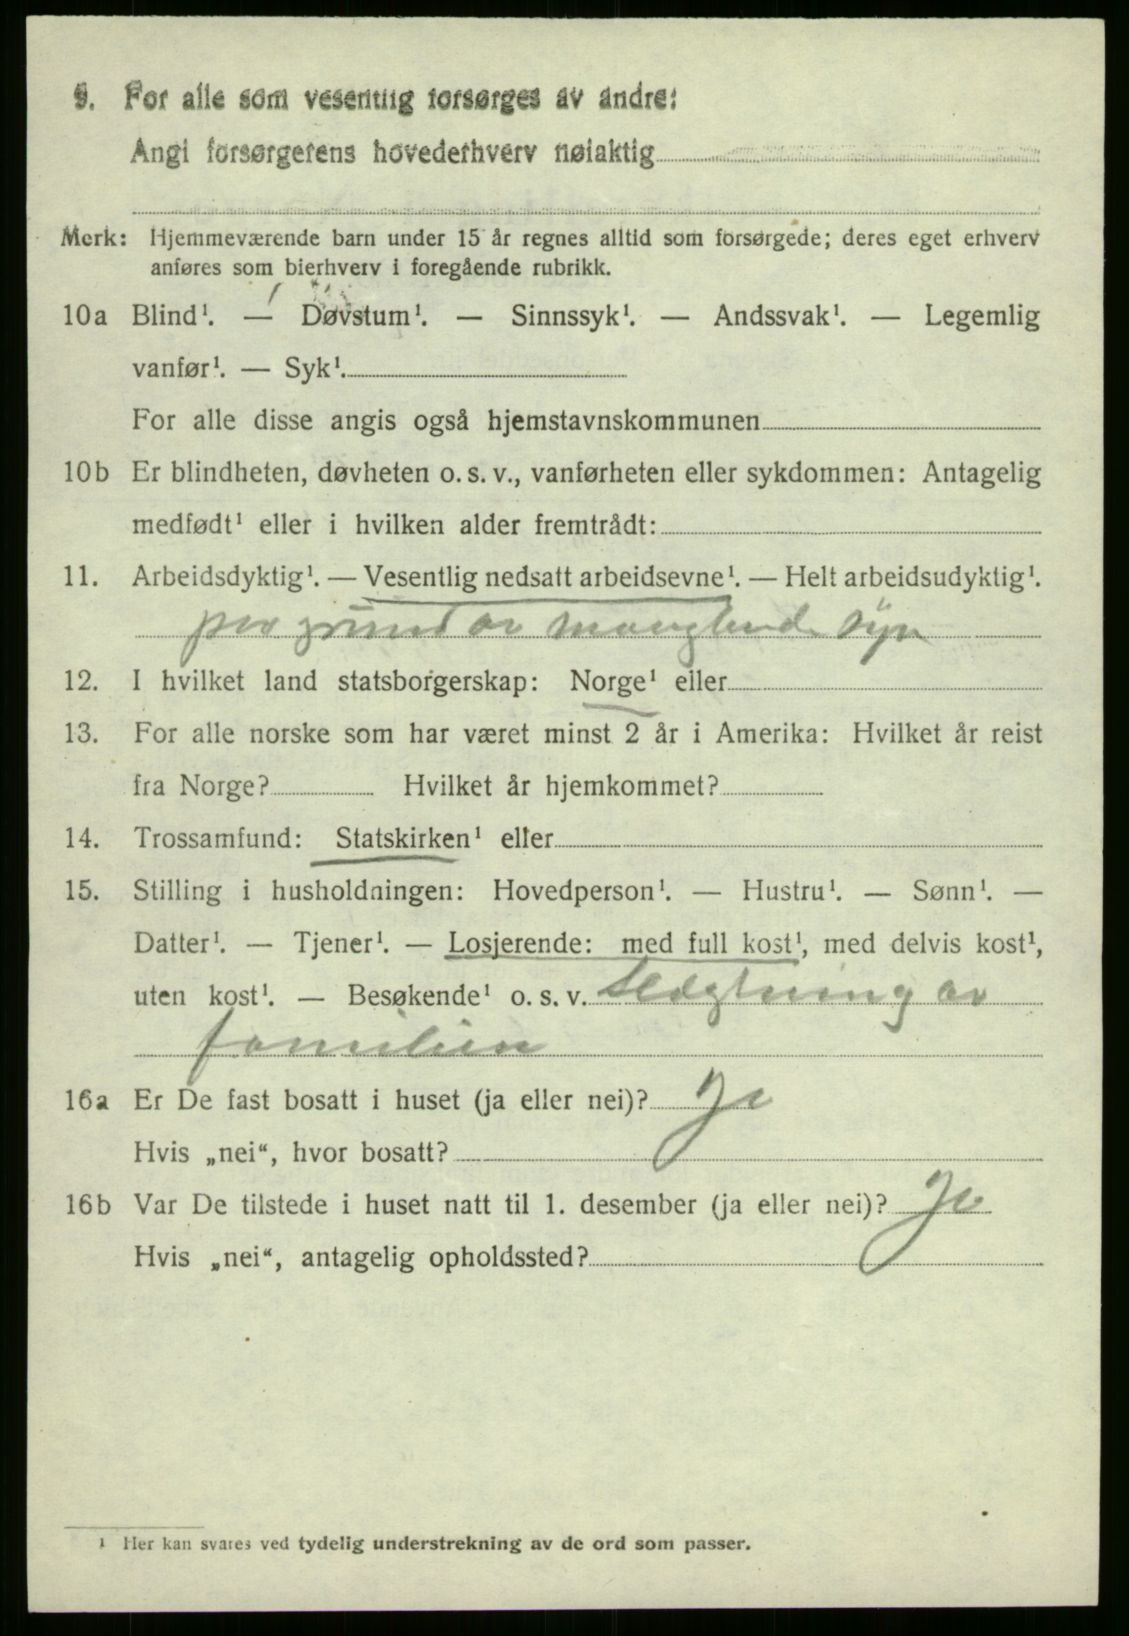 9. For alle som vesentlig forsørges av andre:
Angi forsørgerens hovederhverv nøiaktig
Merk: Hjemmeværende barn under 15 år regnes alltid som forsørgede; deres eget erhverv
anføres som bierhverv i foregående rubrikk.
10a Blind¹. — Døvstum¹. — Sinnssyk¹. — Andssvak¹. — Legemlig
vanfør¹. — Syk¹.
For alle disse angis også hjemstavnskommunen
10b Er blindheten, døvheten o. s. v., vanførheten eller sykdommen: Antagelig
medfødt¹ eller i hvilken alder fremtrådt:
11. Arbeidsdyktig¹. — Vesentlig nedsatt arbeidsevne¹. — Helt arbeidsudyktig¹.
paa grund av manglende syn
12. I hvilket land statsborgerskap: Norge¹ eller
13. For alle norske som har været minst 2 år i Amerika: Hvilket år reist
fra Norge? Hvilket år hjemkommet?
14. Trossamfund: Statskirken¹ eller
15. Stilling i husholdningen: Hovedperson¹. — Hustru¹. — Sønn¹. —
Datter¹. — Tjener¹. — Losjerende: med full kost¹, med delvis kost¹,
uten kost¹. — Besøkende¹ o. s. v. Slægtning av
familien
16a Er De fast bosatt i huset (ja eller nei)? Ja
Hvis „nei“, hvor bosatt?
16b Var De tilstede i huset natt til 1. desember (ja eller nei)? Ja
Hvis „nei“, antagelig opholdssted?
¹ Her kan svares ved tydelig understrekning av de ord som passer.